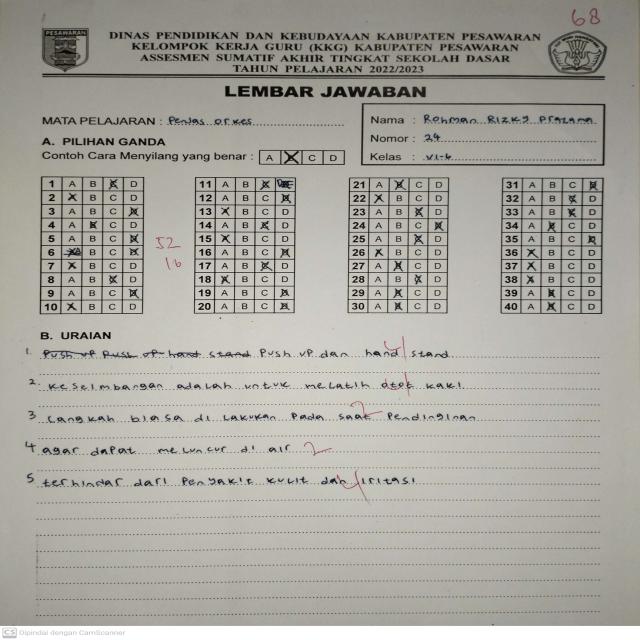 68
PESAWARAN
DINAS PENDIDIKAN DAN KEBUDAYAAN KABUPATEN PESAWARAN
KELOMPOK KERJA GURU (KKG) KABUPATEN PESAWARAN
ASSESMEN SUMATIF AKHIR TINGKAT SEKOLAH DASAR
TAHUN PELAJARAN 2022/2023
LEMBAR JAWABAN
MATA PELAJARAN : Penjas orkes
Nama : Rohman Rizky Pratama
Nomor : 24
Kelas : VI-b
A. PILIHAN GANDA
Contoh Cara Menyilang yang benar : A B C D
1 A B C D 11 A B C D 21 A B C D 31 A B C D
2 A B C D 12 A B C D 22 A B C D 32 A B C D
3 A B C D 13 A B C D 23 A B C D 33 A B C D
4 A B C D 14 A B C D 24 A B C D 34 A B C D
5 A B C D 15 A B C D 25 A B C D 35 A B C D
6 A B C D 16 A B C D 26 A B C D 36 A B C D
7 A B C D 17 A B C D 27 A B C D 37 A B C D
8 A B C D 18 A B C D 28 A B C D 38 A B C D
9 A B C D 19 A B C D 29 A B C D 39 A B C D
10 A B C D 20 A B C D 30 A B C D 40 A B C D
52
16
B. URAIAN
1. Push up Push up hand stand Push up dan hand stand
2. keseimbangan adalah untuk melatih otot kaki
3 Langkah biasa di lakukan pada saat pendinginan
4 agar dapat meluncur di air
5 terhindar dari penyakit kulit dan iritasi
CS Dipindai dengan CamScanner